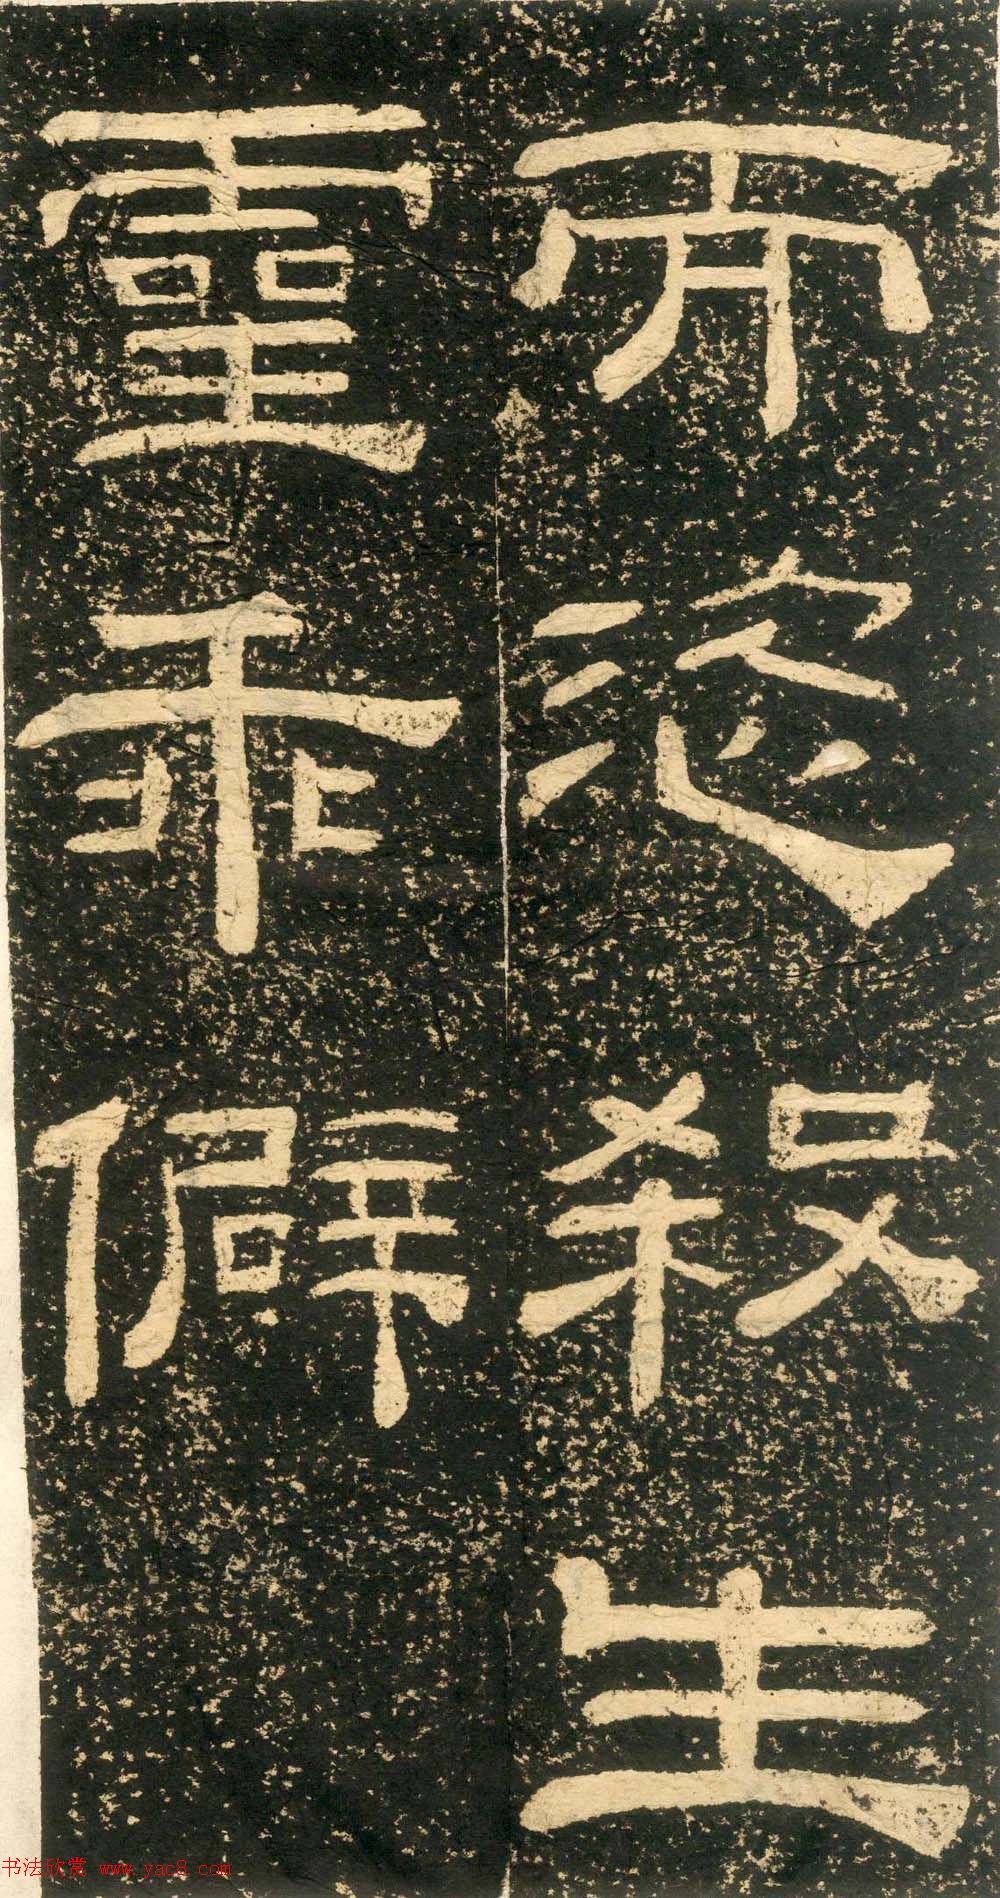 而恣殺生
靈乖僻
书法欣赏 www.yac8.com